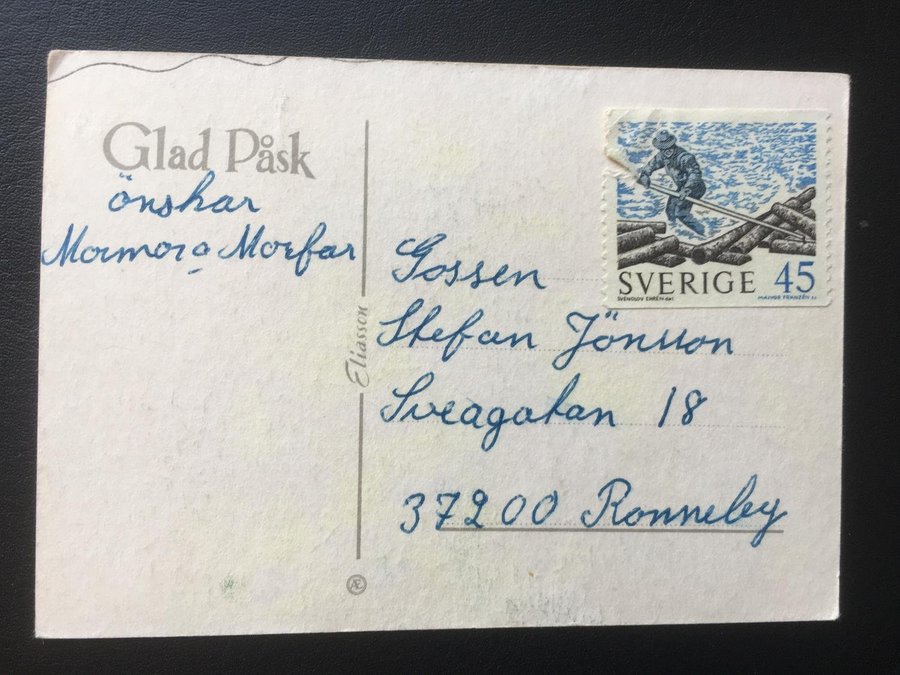 Glad Påsk
önskar
Mormor o Morfar
Eliasson
Æ
SVERIGE 45
SVENOLOV EHRÉN del. MAJVOR FRANZÉN sc.
Gossen
Stefan Jönsson
Sveagatan 18
37200 Ronneby